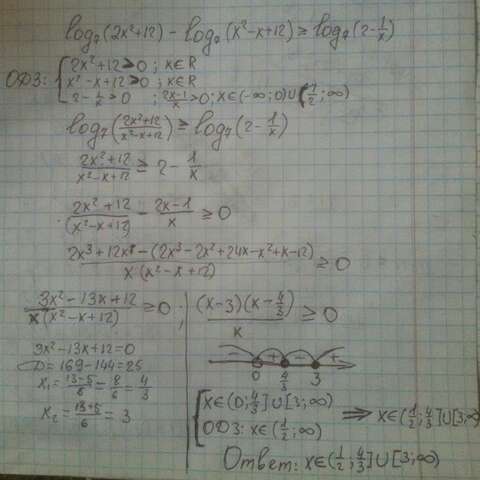 log₇(2x²+12) - log₇(x²-x+12) ≥ log₇(2-1/x)
ОДЗ: { 2x²+12>0 ; x∈R
x²-x+12>0 ; x∈R
2-1/x>0 ; (2x-1)/x>0; x∈(-∞;0)∪(1/2;∞)
log₇((2x²+12)/(x²-x+12)) ≥ log₇(2-1/x)
(2x²+12)/(x²-x+12) ≥ 2 - 1/x
(2x²+12)/(x²-x+12) - (2x-1)/x ≥ 0
(2x³+12x-(2x³-2x²+24x-x²+x-12))/(x(x²-x+12)) ≥ 0
(3x²-13x+12)/(x(x²-x+12)) ≥ 0 ;
3x²-13x+12=0
D=169-144=25
x₁=(13-5)/6=8/6=4/3
x₂=(13+5)/6=3
((x-3)(x-4/3))/x ≥ 0
- + - +
0 4/3 3
{ x∈(0;4/3]∪[3;∞)
ОДЗ: x∈(1/2;∞) ⇒ x∈(1/2;4/3]∪[3;∞)
Ответ: x∈(1/2;4/3]∪[3;∞)